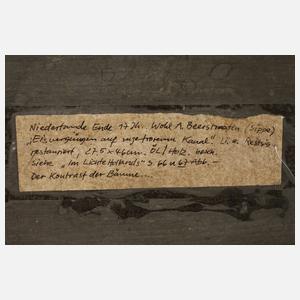 Niederlande Ende 17. Jh. Wohl A. Beerstraaten (Sippe)
"Eisvergnügen auf zugefrorenem Kanal". U. a. Restrig
restauriert, 27.5 x 46 cm. Öl / Holz. besch.
siehe "Im Lichte Hollands" S 66 u 67 Abb. –
Der Kontrast der Bäume....